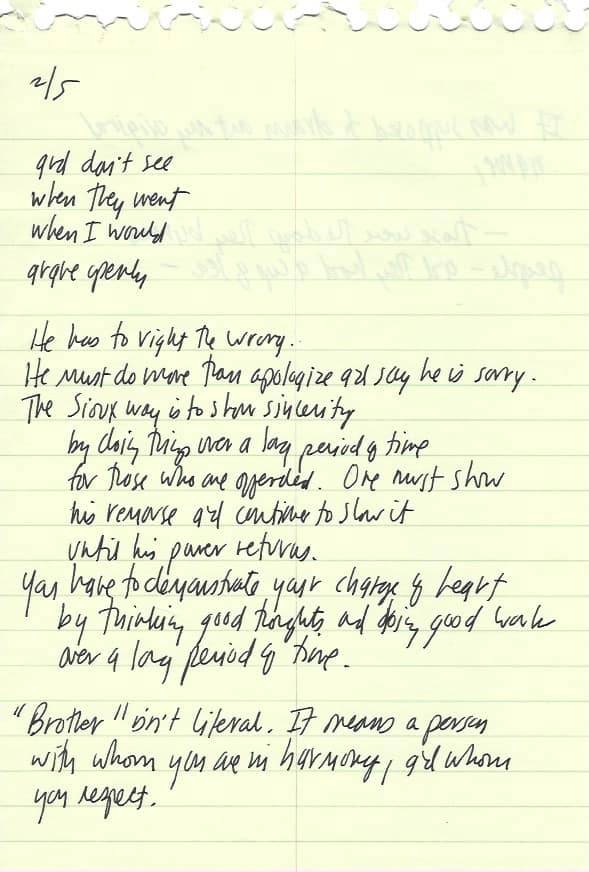 2/5
and don't see
when they went
when I would
argue openly
He has to right the wrong.
He must do more than apologize and say he is sorry.
The Sioux way is to show sincerity
by doing things over a long period of time
for those who are offended. One must show
his remorse and continue to show it
until his power returns.
You have to demonstrate your change of heart
by thinking good thoughts and doing good works
over a long period of time.
"Brother" isn't literal. It means a person
with whom you are in harmony, and whom
you respect.